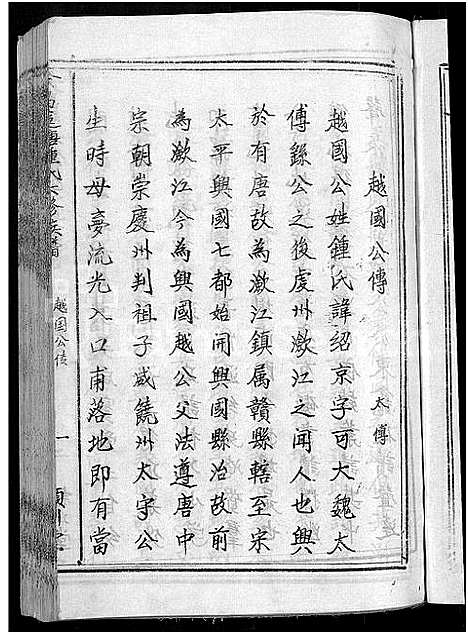 越國公傳
太傅
越國公姓鍾氏諱紹京字可大魏太
傅繇公之後虔州瀲江之聞人也興
於有唐故為瀲江鎮属贛縣轄至宋
太平興國七都始開興國縣治故前
為瀲江今為興國越公父法遵唐中
宗朝崇慶州判祖子威饒州太守公
生時母夢流光入口甫落地即有當
越国公傳
一